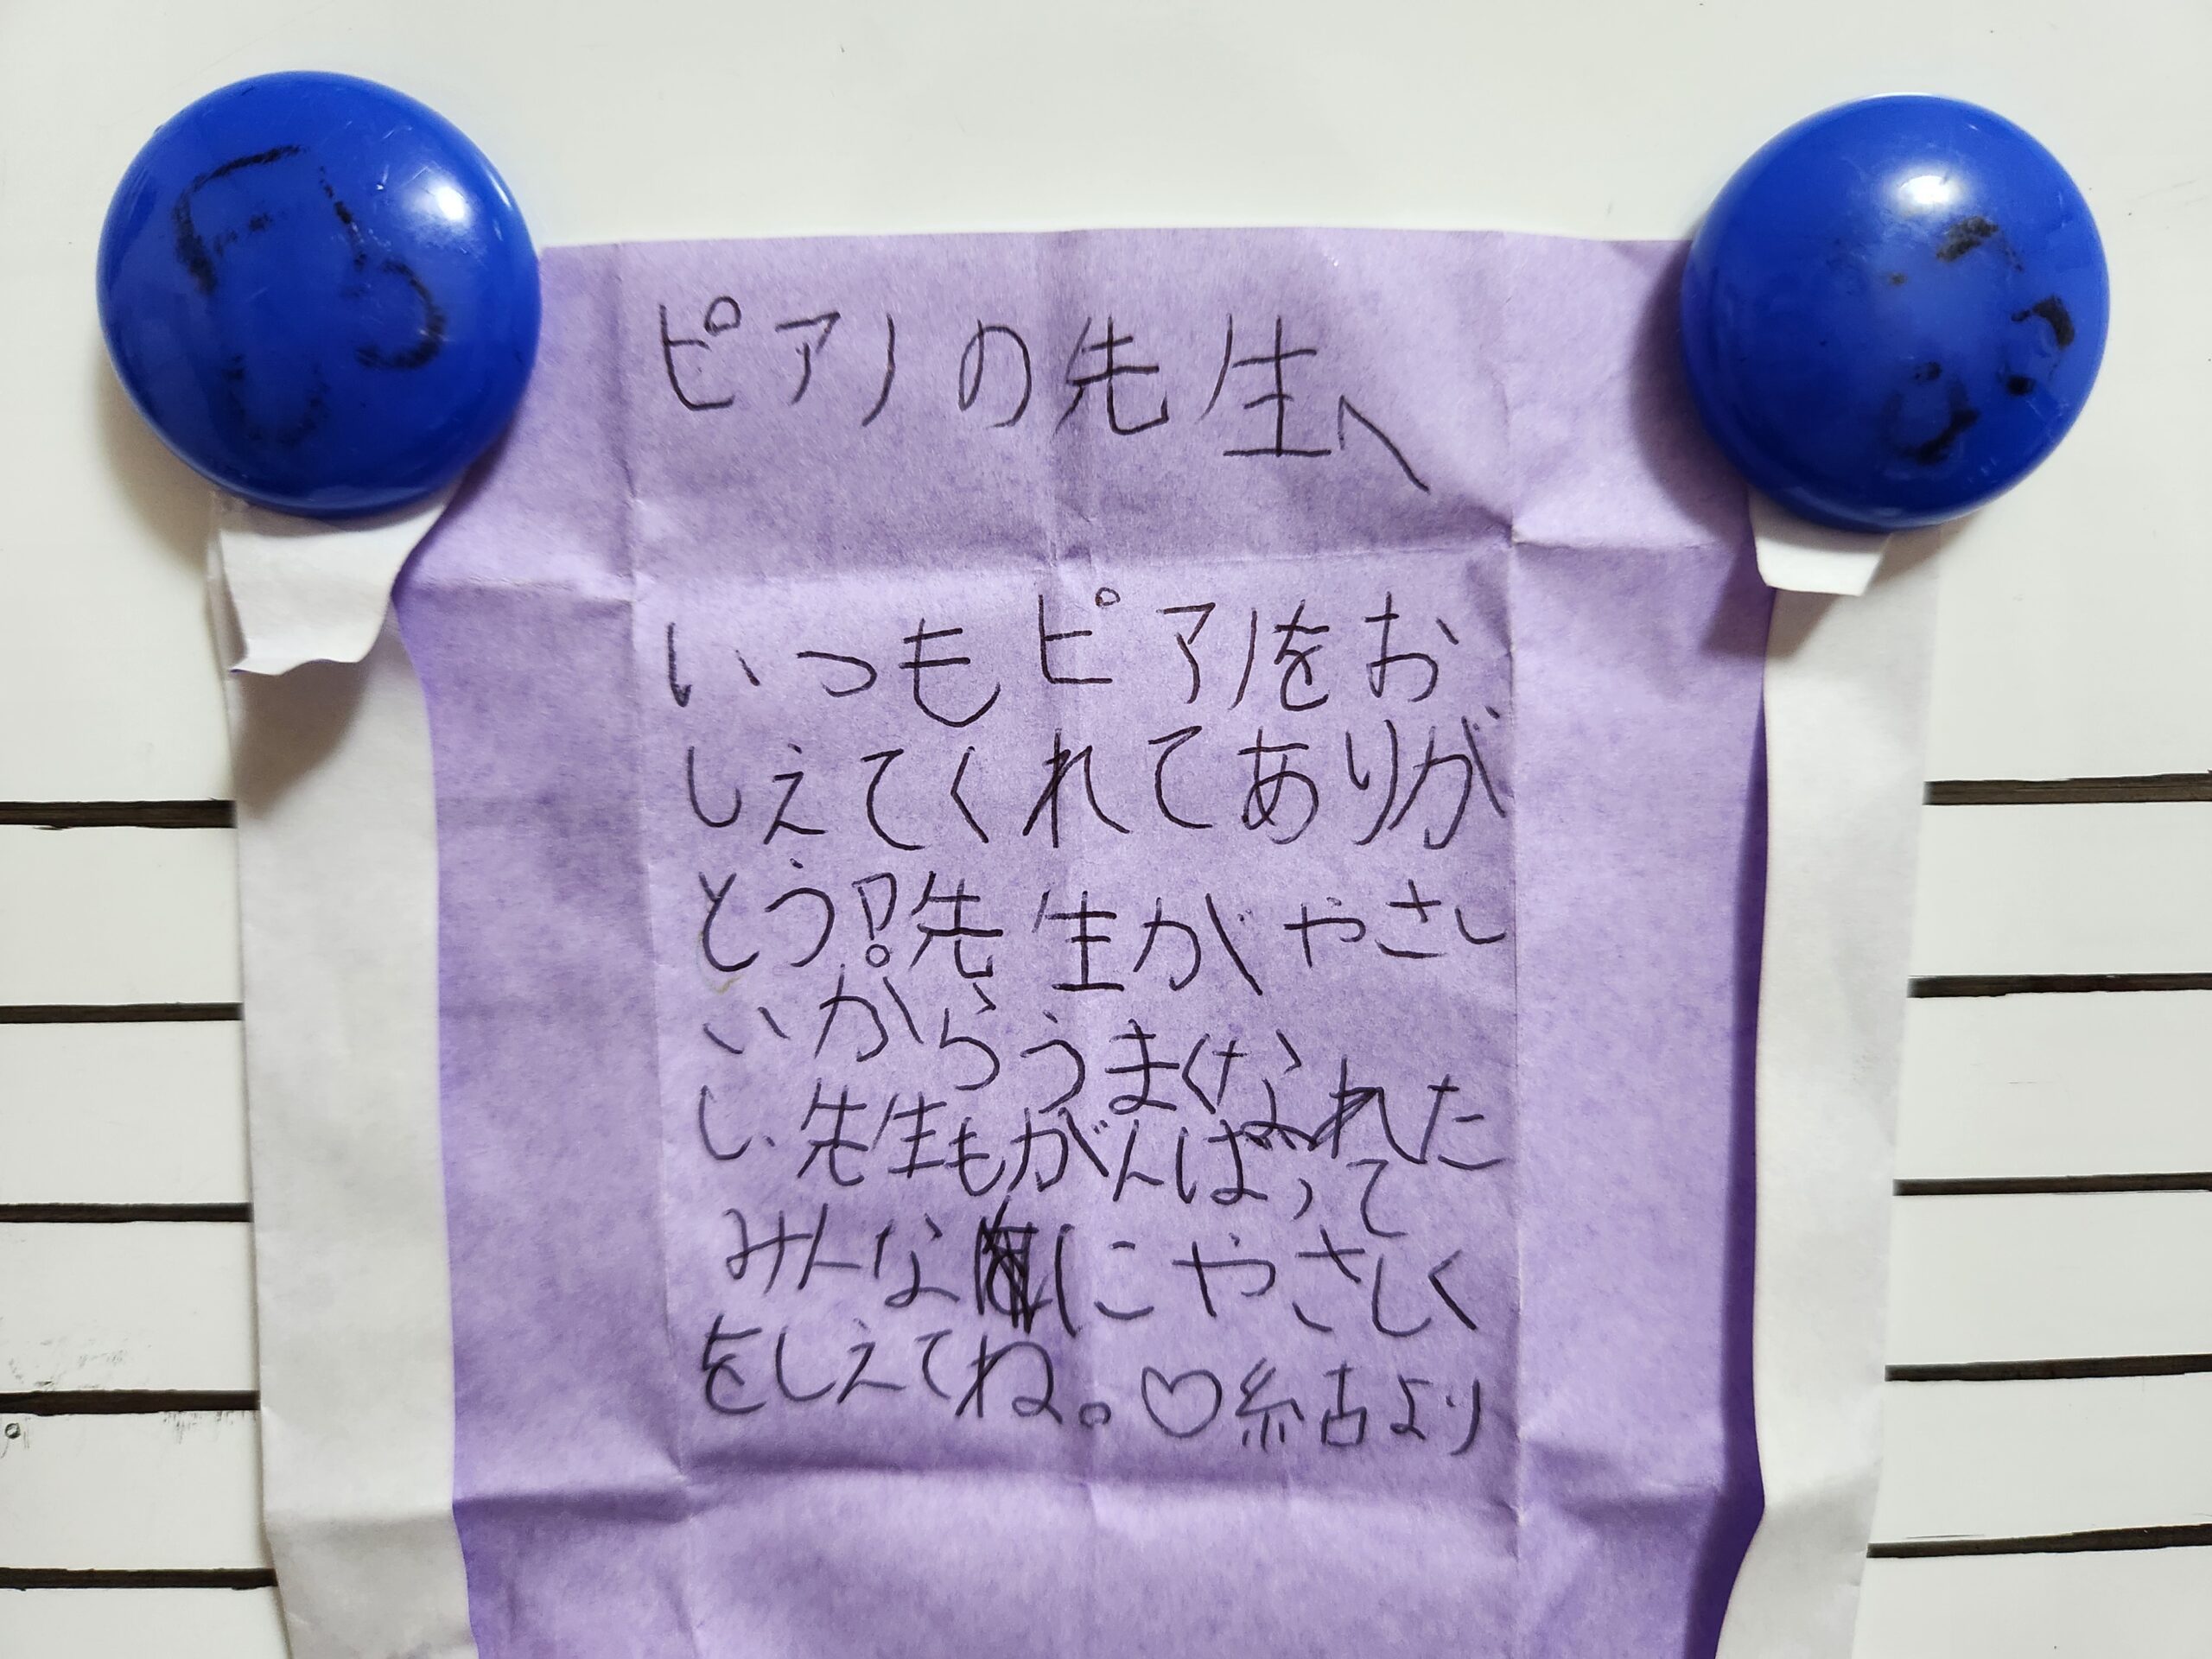 ピアノの先生へ
いつもピアノをお
しえてくれてありが
とう!先生がやさし
いからうまくなれた
し、先生もがんばって
みんなにやさしく
をしえてね。♡結より